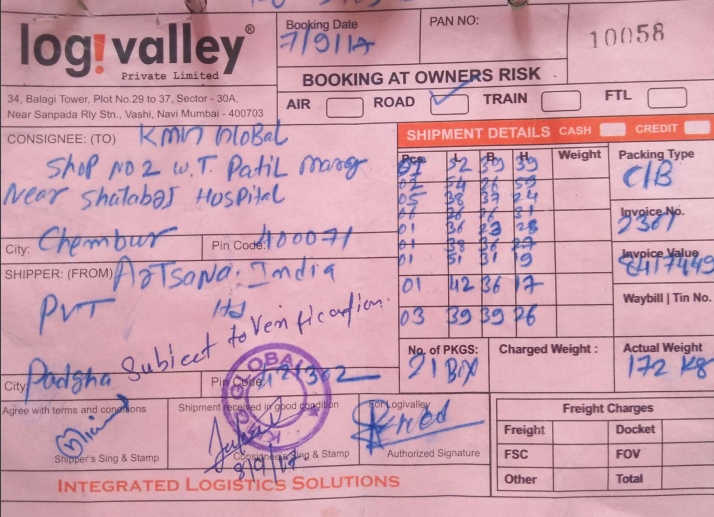 log!valley®
Private Limited
34, Balagi Tower, Plot No.29 to 37, Sector - 30A,
Near Sanpada Rly Stn., Vashi, Navi Mumbai - 400703
Booking Date
7/9/17
PAN NO:
10058
BOOKING AT OWNERS RISK
AIR ROAD ✓ TRAIN FTL
CONSIGNEE: (TO) KMN Global
Shop NO 2 W.T. Patil marg
Near Shatabdi Hospital
City: Chembur Pin Code: 400071
SHIPPER: (FROM) Artsana India
PVT ltd
Subject to Verification.
City: Padgha Pin Code: 421302
SHIPMENT DETAILS CASH CREDIT
Pcs. L B H Weight
52 39 39
02 54 26 59
05 38 37 24
26 26 31
01 36 23 28
01 38 36 27
01 51 31 19
01 42 36 17
03 39 39 26
Packing Type
C/B
Invoice No.
2361
Invoice Value
8417449
Waybill | Tin No.
No. of PKGS:
21 Box
Charged Weight :
Actual Weight
172 KG
Agree with terms and conditions
Shipper's Sing & Stamp
Shipment received in good condition
GLOBAL
8/9/17
Consignee's Sing & Stamp
For Logivalley
Authorized Signature
Freight Charges
Freight Docket
FSC FOV
Other Total
INTEGRATED LOGISTICS SOLUTIONS